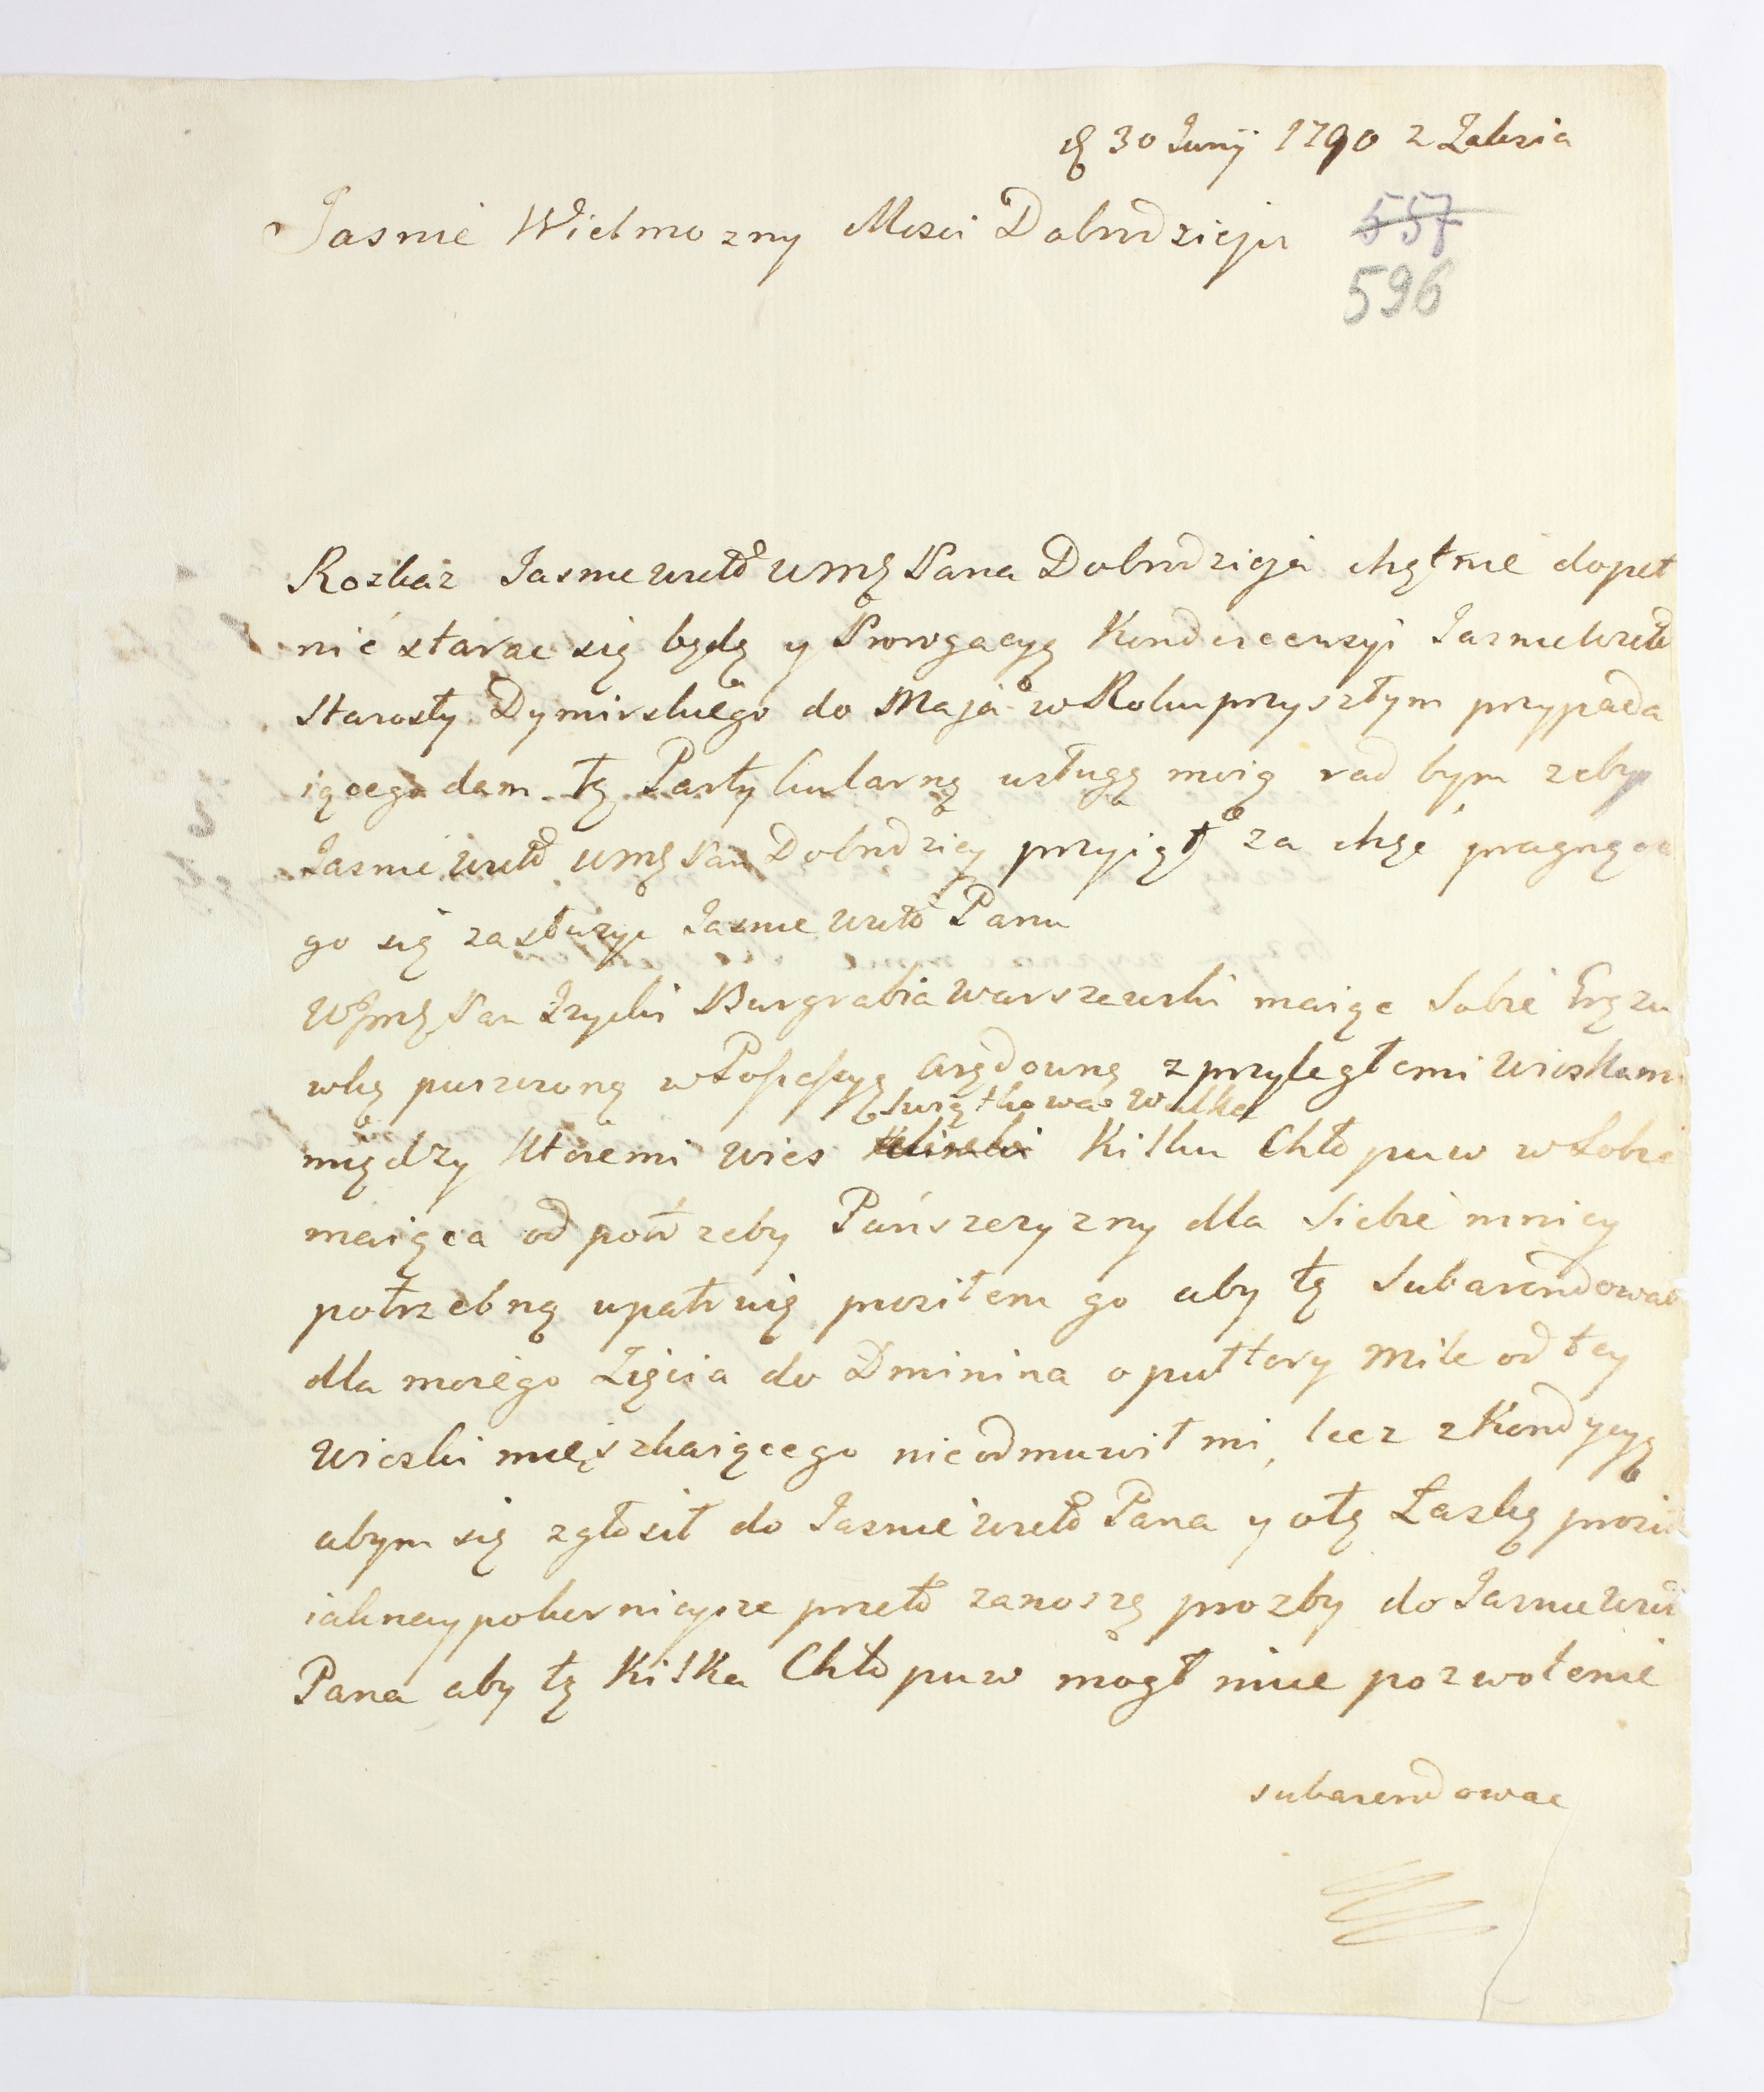 D 30 Junij 1790 z Zalesia
Jasnie Wielmozny Mosci Dobrodzieju
557
596
Rozkaz Jasnie Wielo WMę Pana Dobrodzieja chętnie dopeł
nić starac się będę y Prorogacyą Kondescensyi Jasnie Wielo
Starosty Dymirskiego do Maja w Roku przyszłym przypada
iącego dam. tę Partykularną usługę moią rad bym zeby
Jasnie Wielo WMę Pan Dobrodziey przyiął za chęć pragnące
go się zasłuzyc Jasnie Wielo Panu
WJmę Pan Izycki Burgrabia Warszewski maiąc Sobie
wkę puszczoną w Possessyą Arędowną z przyległemi Wioskami
między ktoremi Wies Kilku Chłopuw w Sobie
Swiętkowa Wulka
maiąca od potrzeby Pańszczyzny dla Siebie mniey
potrzebną upatruię prosiłem go aby tę Subarendował
dla moiego Zięcia do Dminina o pułtory Mile od tey
Wioski mięszkaiącego nieodmuwił mi, lecz z Kondycyą
abym się zgłosił do Jasnie Wielo Pana y o tę Łaskę prosił
iaknaypokornieysze przeto zanoszę prozby do Jasnie Wielo
Pana aby tę Kilka Chłopuw mogł miec pozwolenie
subarendowac